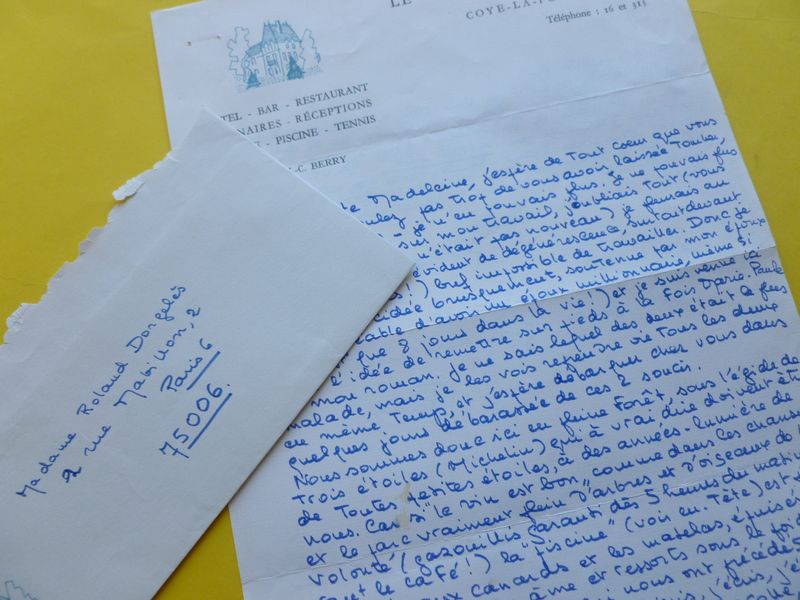 LE
COYE-LA-FO
Téléphone : 16 et 315
TEL - BAR - RESTAURANT
NAIRES - RÉCEPTIONS
- PISCINE - TENNIS
C. BERRY
Madeleine, j'espère de tout coeur que vous
pas trop de vous avoir laissée tomber,
je n'en pouvais plus. Je ne pouvais plus
sur mon travail, j'oubliais tout (vous
n'était pas nouveau) je pensais au
évident de dégénérescence, surtout devant
!) bref impossible de travailler. Donc je
décidée brusquement, soutenue par mon époux
d'avoir un époux millionnaire, même si
que 8 jours dans la vie!) et je suis venue ici
l'idée de remettre sur pieds à la fois Marie-Paule
mon roman. Je ne sais lequel des deux était le plus
malade, mais je les vois reprendre vie tous les deux
en même temps, et j'espère débarquer chez vous dans
quelques jours débarassée de ces 2 soucis.
Nous sommes donc ici en pleine forêt, sous l'égide de
trois étoiles (Michelin) qui à vrai dire doivent être
de toutes petites étoiles, à des années-lumière de
nous. Car si "le vin est bon" comme dans les chansons
et le parc vraiment plein d'arbres et d'oiseaux à
volonté (gazouillis garanti dès 5 heures du matin
avant le café!) la "piscine" (voir en-tête) est
aux canards et les matelas, épuisés
âme et ressorts sous le poids
qui nous ont précédés
Madame Roland Dorgelès
2 rue Mabillon, 2
Paris 6
75006.